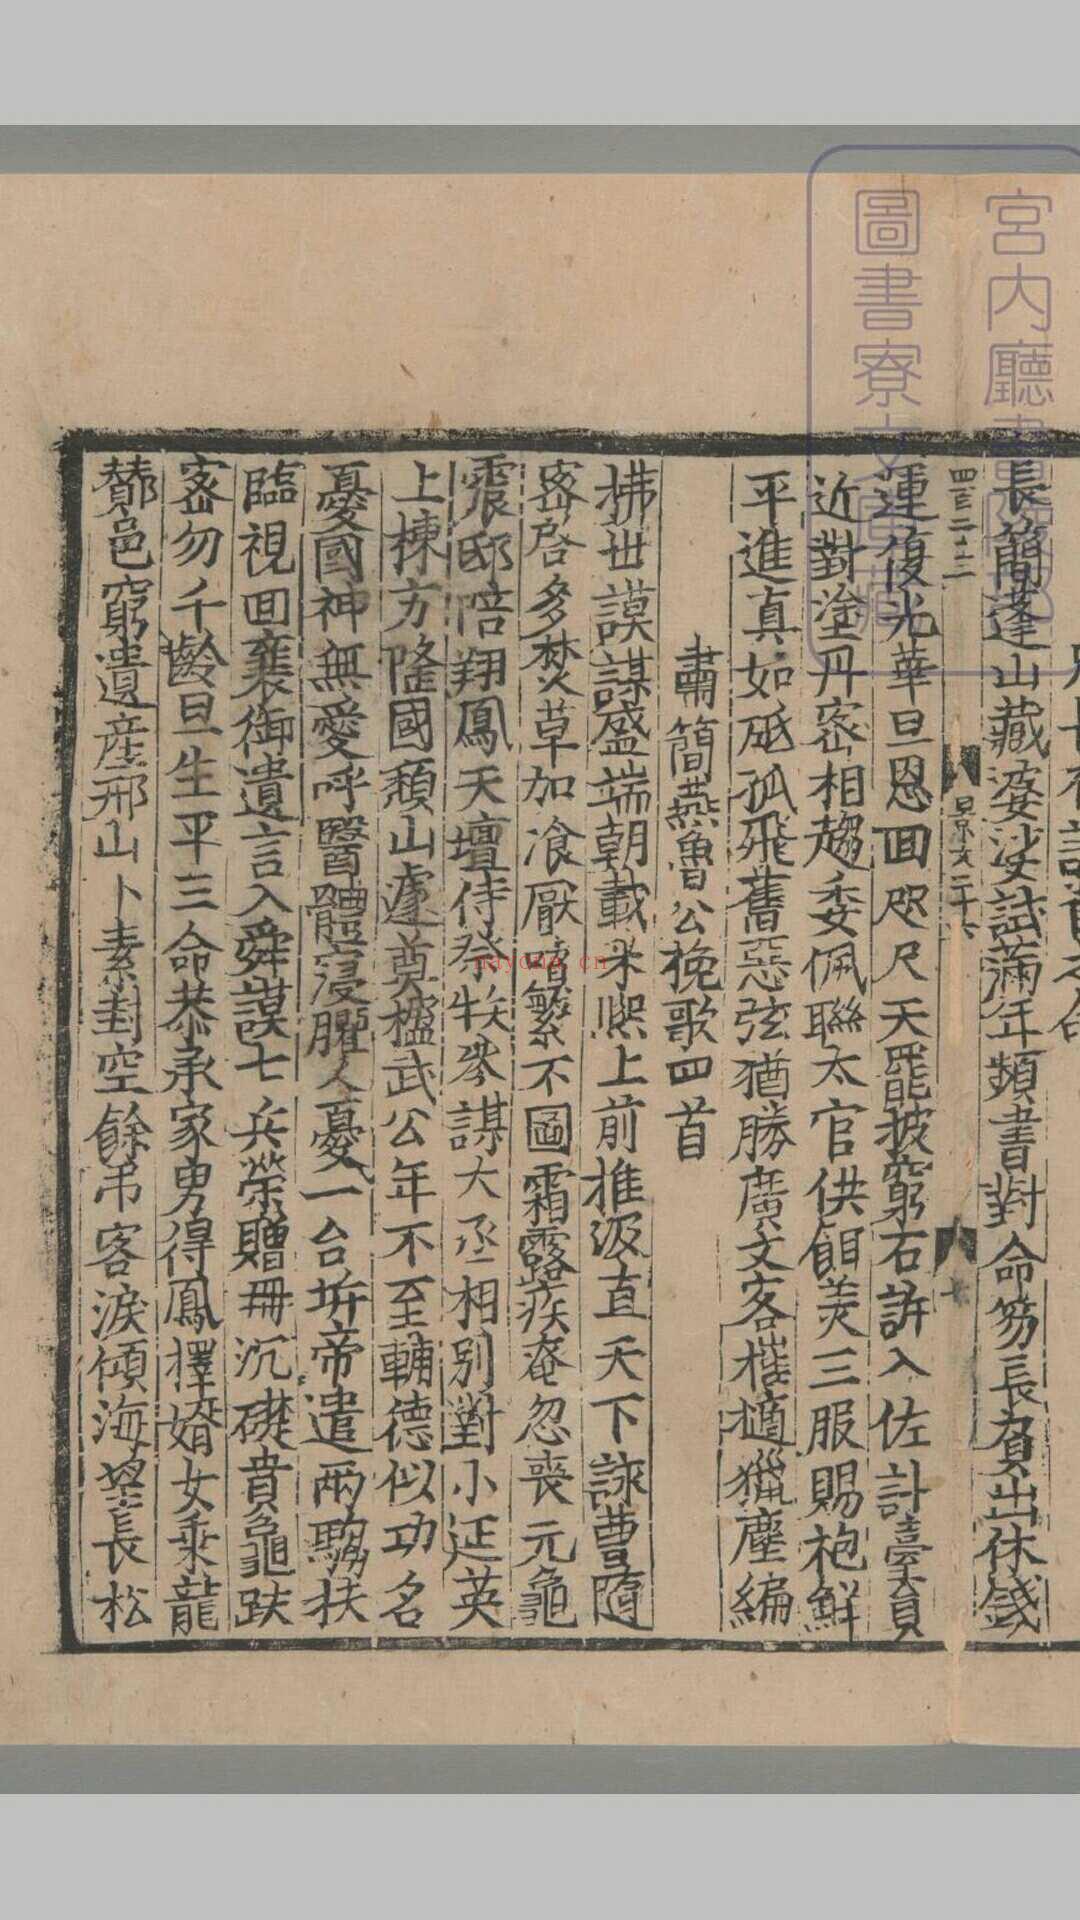 宮內廳書陵部
圖書寮文庫
長簡蓬山藏婆娑試滿年類書對命笏長賁出休錢
四百二十二
景文二十六
運復光華旦恩回咫尺天罷披窮右訢入佐計臺負
近對塗丹密相趨委佩聯太官供餌羙三服賜袍鮮
平進真如砥孤飛舊惡弦猶勝廣文客槎樋獵塵編
肅簡燕魯公挽歌四首
拂丗謨謀盛端朝載采熙上前推汲直天下詠曹隨
密啓多焚草加飡厭繁不圖霜露疾奄忽喪元龜
震邸陪翔鳳天壇侍祭牲參謀大丞相別對小延英
上棟方隆國頹山遽奠楹武公年不至輔德似功名
憂國神無愛呼醫體寖臞人憂一台坼帝遣兩騶扶
臨視回衮御遺言入舜謨七兵榮贈冊沉礎賁龜趺
密勿千齡旦生平三命恭承家男得鳳擇婿女乘龍
鄼邑窮遺産邢山卜素封空餘吊客淚傾海望長松